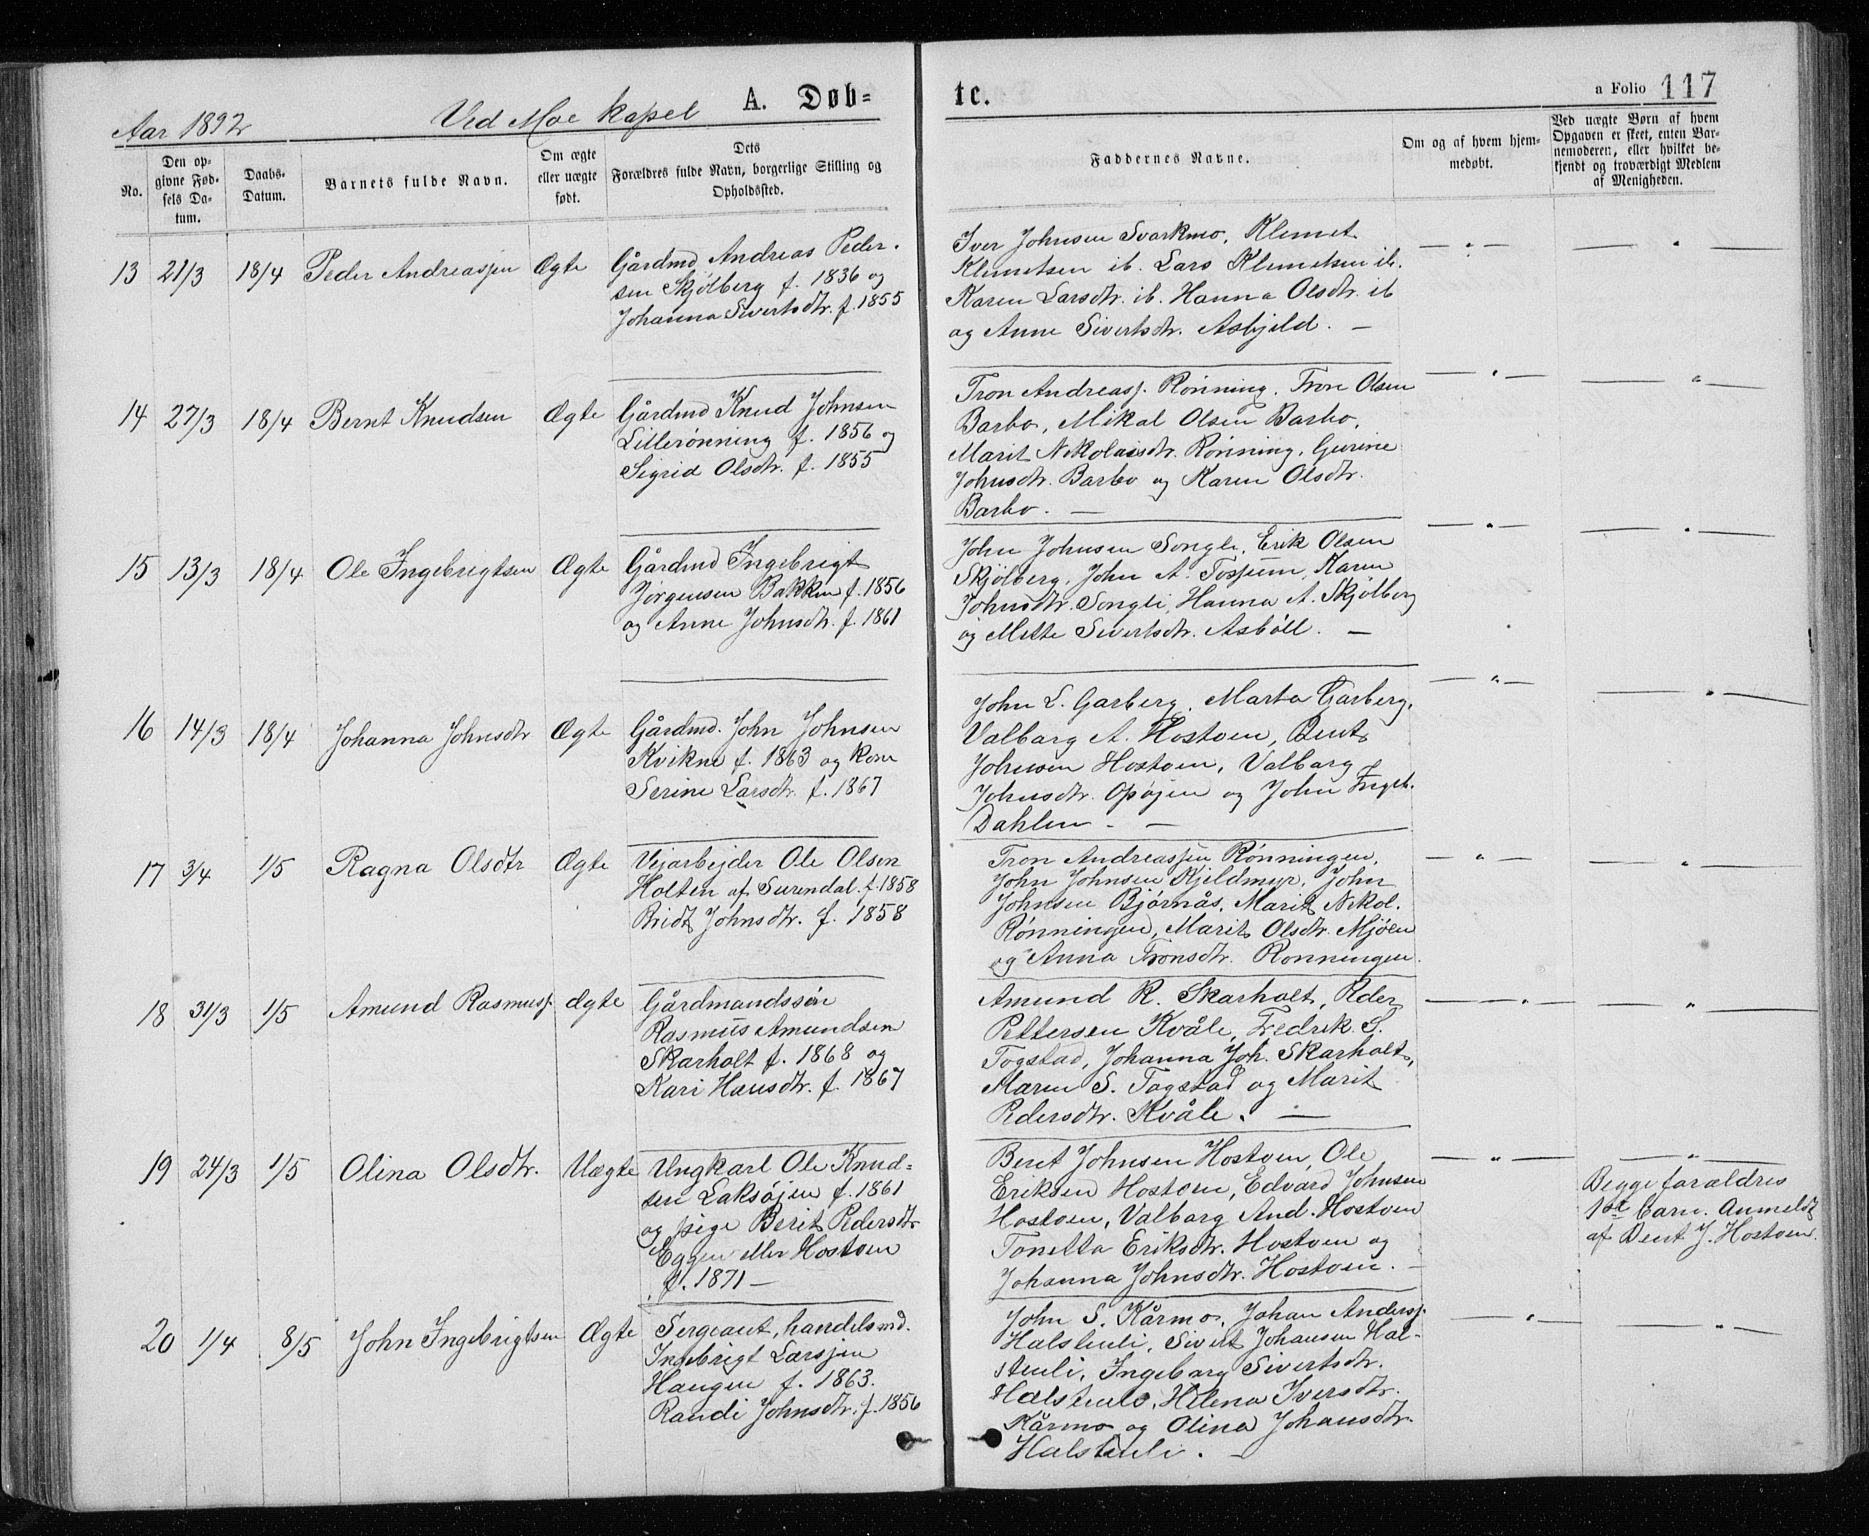 Aar 1892
Ved Moe kapel
A. Døb-
te.
a Folio 117
No.
Den op-
givne Fød-
sels Da-
tum.
Daabs-
Datum.
Barnets fulde Navn.
Om ægte
eller uægte
født.
Dets
Forældres fulde Navn, borgerlige Stilling og
Opholdssted.
Faddernes Navne.
Om og af hvem hjem-
medøbt.
Ved uægte Børn af hvem
Opgaven er skeet, enten Bar-
nemoderen, eller hvilket be-
kjendt og troværdigt Medlem
af Menigheden.
13 21/3 18/4 Peder Andreassen Ægte
Gårdmd Andreas Peder-
sen Skjølberg f. 1836 og
Johanna Sivertsdtr. f. 1855
Iver Johnsen Svarkmo, Klemet
Klemetsen ib. Lars Klemetsen ib.
Karen Larsdtr. ib. Hanna Olsdtr. ib
og Anne Sivertsdtr. Asbjeld. —
— " —
— " —
14 27/3 18/4 Bernt Knudsen Ægte
Gårdmd Knud Johnsen
Lillerønning f. 1856 og
Sigrid Olsdtr. f. 1855
Tron Andreass. Rønning, Tron Olsen
Barbo, Mikal Olsen Barbo,
Marit Nikolaisdtr. Rønning, Gurine
Johnsdtr. Barbo og Karen Olsdtr.
Barbo. —
— " —
"
15 13/3 18/4 Ole Ingebrigtsen Ægte
Gårdmd Ingebrigt
Jørgensen Bakken f. 1856
og Anne Johnsdtr. f. 1861
John Johnsen Songli, Erik Olsen
Skjølberg, John A. Karen
Johnsdtr. Songli, Hanna A. Skjølberg
og Mette Sivertsdtr. Asbøll. —
— " —
— " —
16 14/3 18/4 Johanna Johnsdtr Ægte
Gårdmd. John Johnsen
Kvikne f. 1863 og kone
Serine Larsdtr. f. 1867
John L. Garberg, Marta Garberg,
Valbarg A. Hostoen, Bent
Johnsen Hostoen, Valbarg
Johnsdtr. Opøjen og John Ingeb.
Dahlen — —
— " —
— " —
17 3/4 1/5 Ragna Olsdtr Ægte
Vejarbejder Ole Olsen
Holten af Surendal f. 1858
Bridt Johnsdtr. f. 1858
Tron Andreassen Rønningen,
John Johnsen Kjeldmyr, John
Johnsen Bjørnås, Marit Nikol.
Rønningen, Marit Olsdtr. Mjøen
og Anna Tronsdtr. Rønningen.
— " —
— " —
18 31/3 1/5 Amund Rasmuss. Ægte
Gårdmandssøn
Rasmus Amundsen
Skarholt f. 1868 og
Kari Hansdtr. f. 1867
Amund R. Skarholt, Peder
Pettersen Kvåle, Fredrik S.
Togstad, Johanna Joh. Skarholt,
Maren S. Togstad og Marit
Pedersdtr. Kvåle. —
— " —
— " —
19 24/3 1/5 Olina Olsdtr. Uægte
Ungkarl Ole Knud-
sen Laksøjen f. 1861
og pige Berit Pedersdtr
Eggen eller Hostoen
f. 1871 —
Bent Johnsen Hostoen, Ole
Eriksen Hostoen, Edvard Johnsen
Hostoen, Valbarg And. Hostoen
Tonetta Eriksdtr. Hostoen og
Johanna Johnsdtr. Hostoen. —
— " —
— " —
Begge forældres
1ste barn. Anmeldt
af Bent J. Hostoen.
20 1/4 8/5 John Ingebrigtsen Ægte
Sergeant, handelsmd.
Ingebrigt Larssen
Haugen f. 1863.
Randi Johnsdtr. f. 1856
John S. Kårmo, Johan Anderss.
Halstuli, Sivert Johansen Hal-
stuli, Ingebarg Sivertsdtr.
Halstuli, Helena Iversdtr.
Kårmo og Olina Johansdtr.
Halstuli. —
— " —
— " —